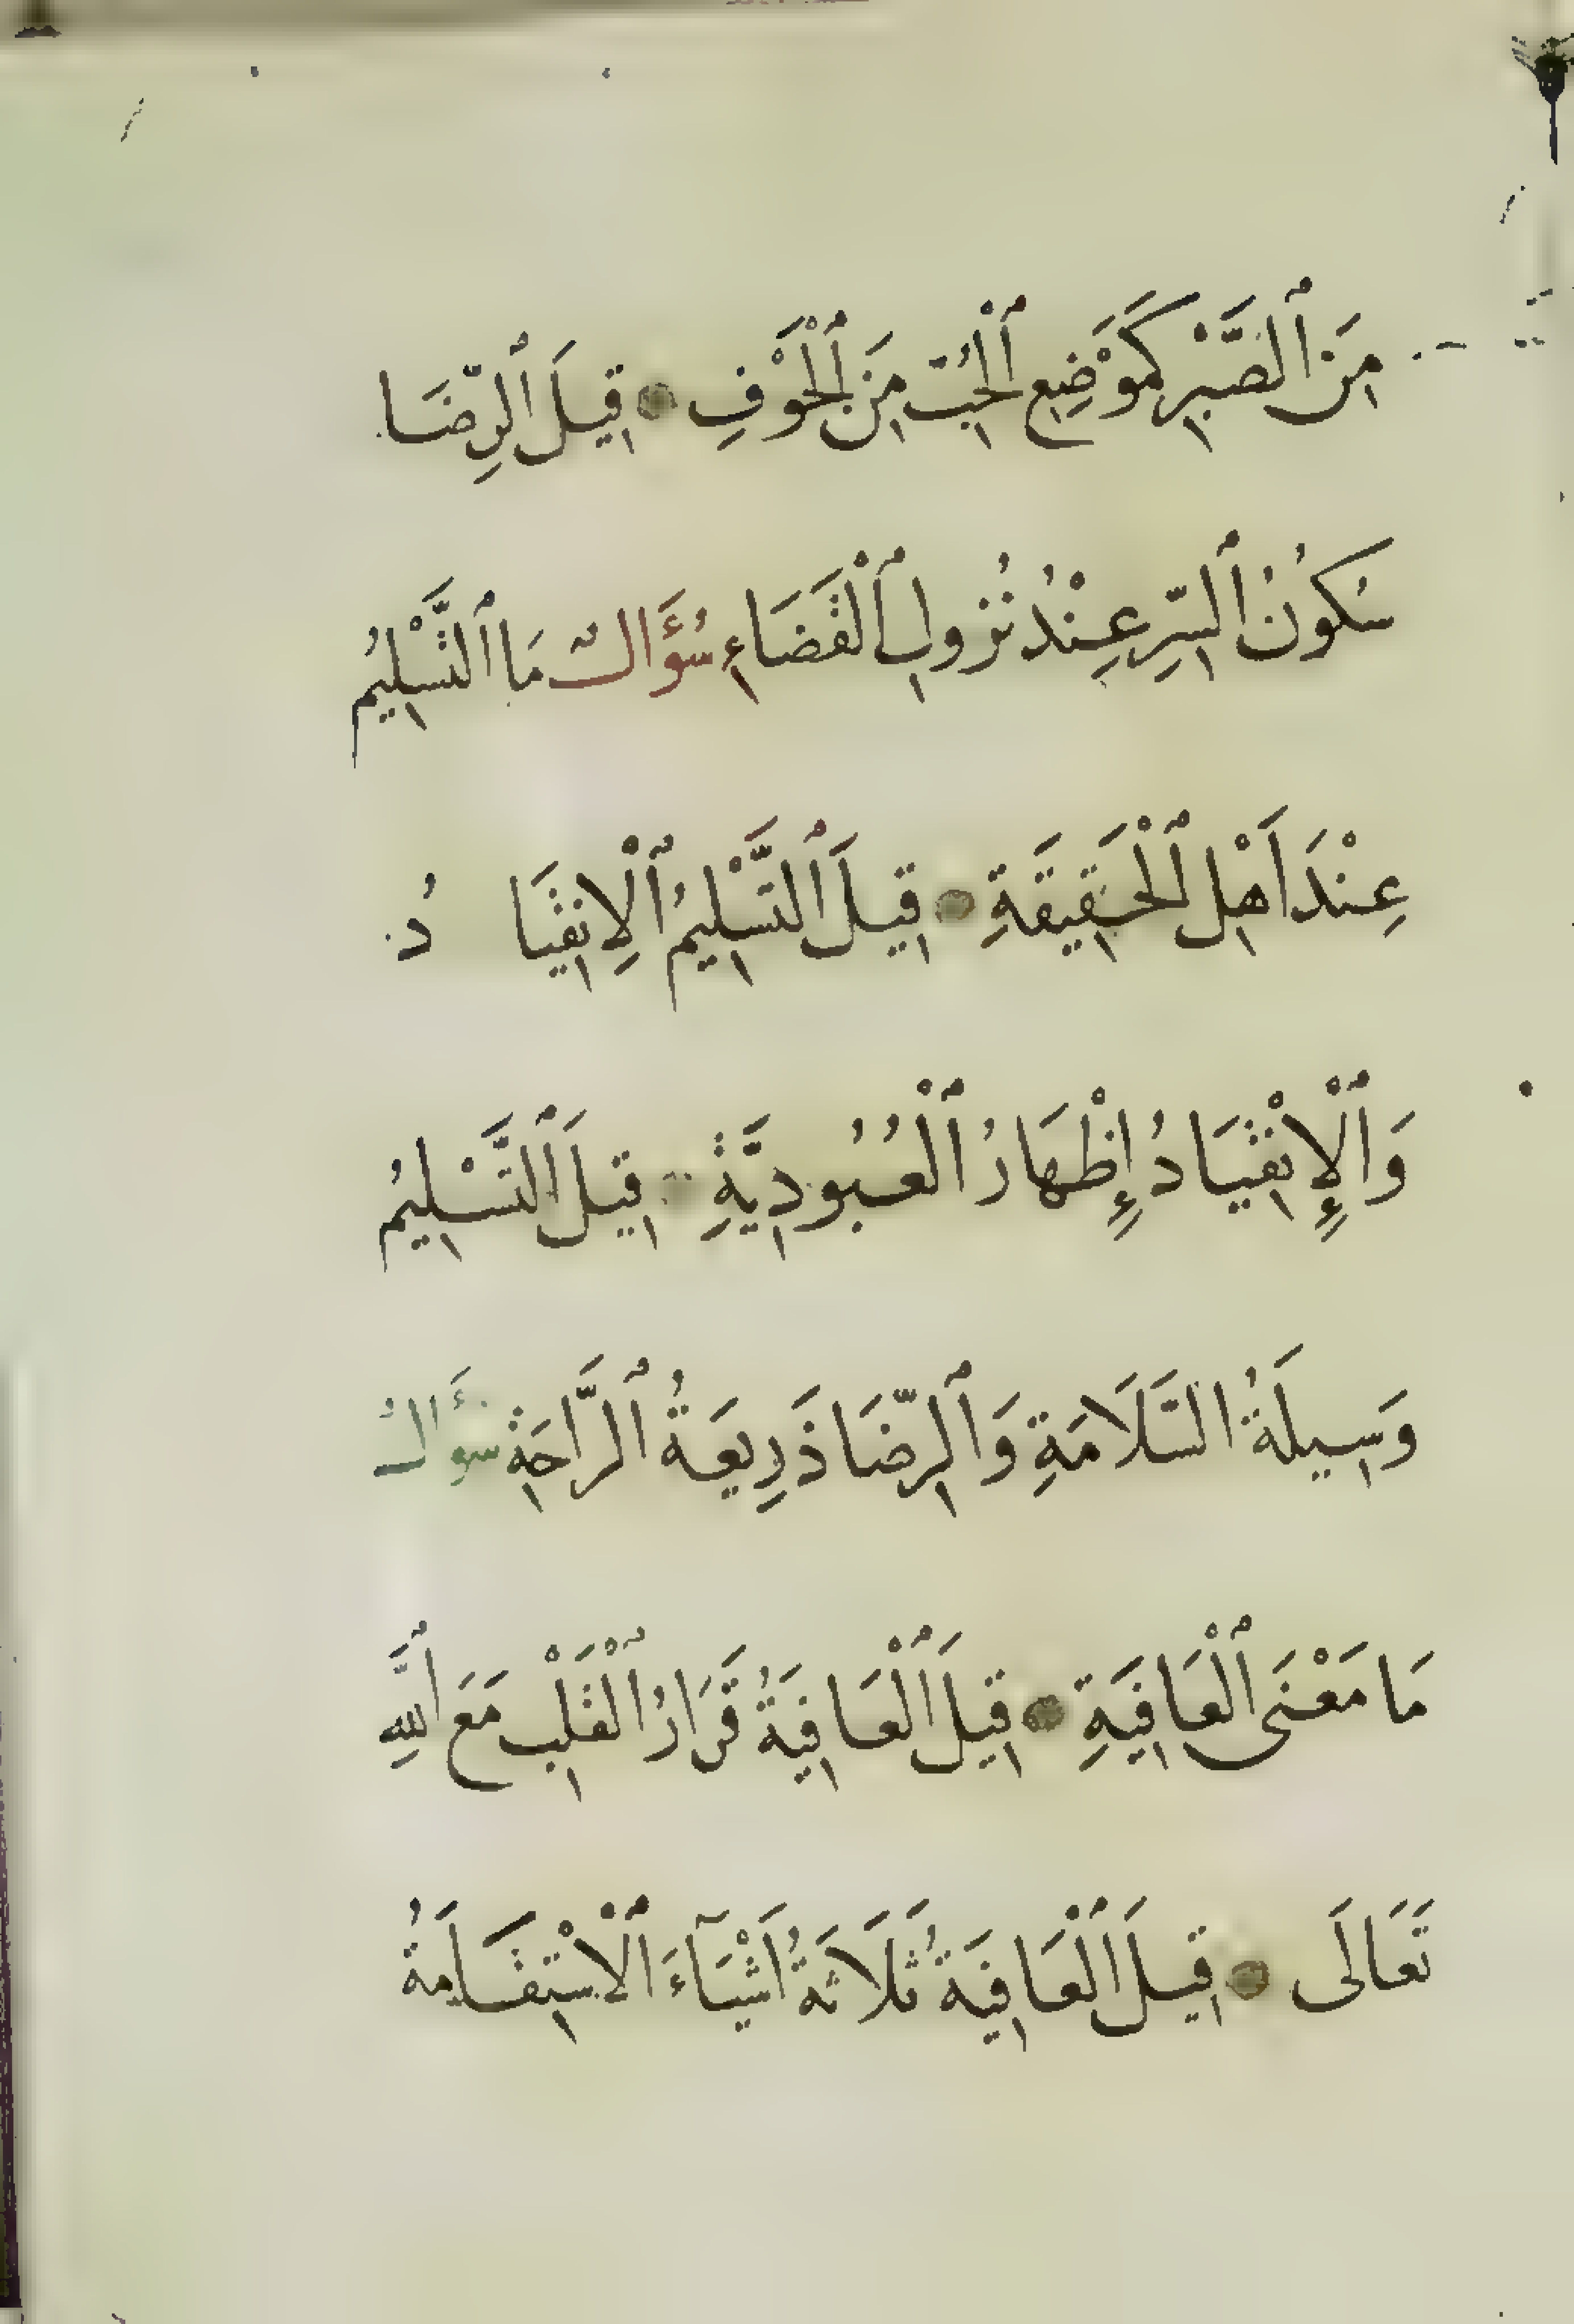 مِنَ ٱلصَّبْرِ كَمَوْضِعِ ٱلْحُبِّ مِنَ ٱلْخَوْفِ قِيلَ ٱلرِّضَا
سُكُونُ ٱلسِّرِّ عِنْدَ نُزُولِ ٱلْقَضَاءِ سُؤَالٌ مَا ٱلتَّسْلِيمُ
عِنْدَ اَهْلِ ٱلْحَقِيقَةِ قِيلَ ٱلتَّسْلِيمُ ٱلْاِنقِيَادُ
وَٱلْإِنْقِيَادُ إِظْهَارُ ٱلْعُبُودِيَّةِ قِيلَ ٱلتَّسْلِيمُ
وَسِيلَةُ السَّلَامَةِ وَٱلرِّضَا ذَرِيعَةُ ٱلرَّاحَةِ سُؤَالُ
مَا مَعْنَى ٱلْعَافِيَةِ قِيلَ ٱلْعَافِيَةُ قَرَارُ ٱلْقَلْبِ مَعَ ٱللَّهِ
تَعَالَى قِيلَ ٱلْعَافِيَةُ ثَلَاثَةُ اَشْيَآءَ ٱلْاسْتِقَامَةُ